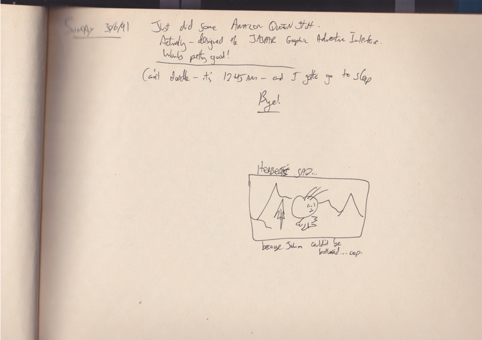 SUNDAY 30/6/91
Just did some AMAZON QUEEN stuff.
Actually - designed of JASPAR Graphic Adventure Interface.
Works pretty good!
Can't doodle - it's 1245 AM - and I gotta go to sleep
Bye!
HERBERT'S SAD...
because John couldn't be
bothered...